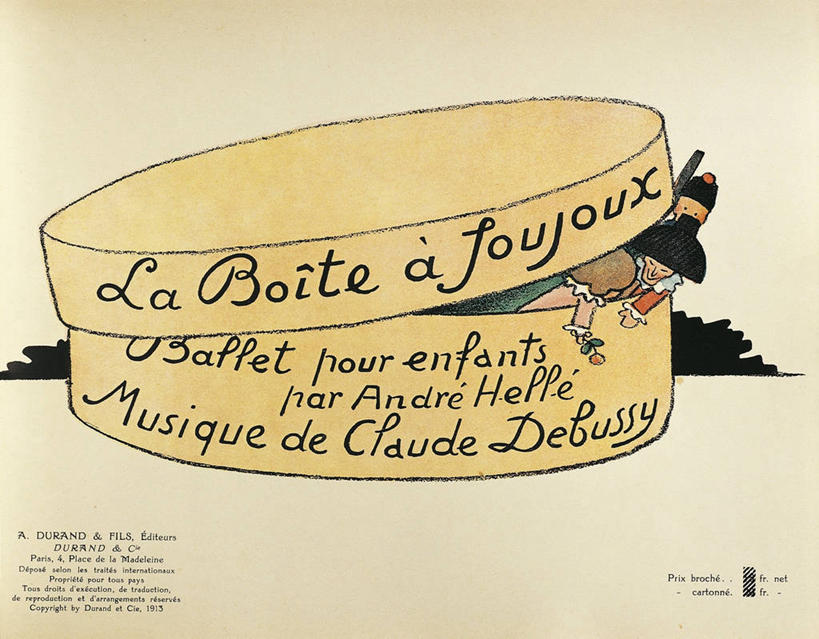 La Boîte à Joujoux
Ballet pour enfants
par André Hellé
Musique de Claude Debussy
A. DURAND & FILS, Éditeurs
DURAND & Cie
Paris, 4, Place de la Madeleine
Déposé selon les traités internationaux
Propriété pour tous pays
Tous droits d'exécution, de traduction,
de reproduction et d'arrangements réservés
Copyright by Durand et Cie, 1913
Prix broché. . fr. net
- cartonné. fr. -